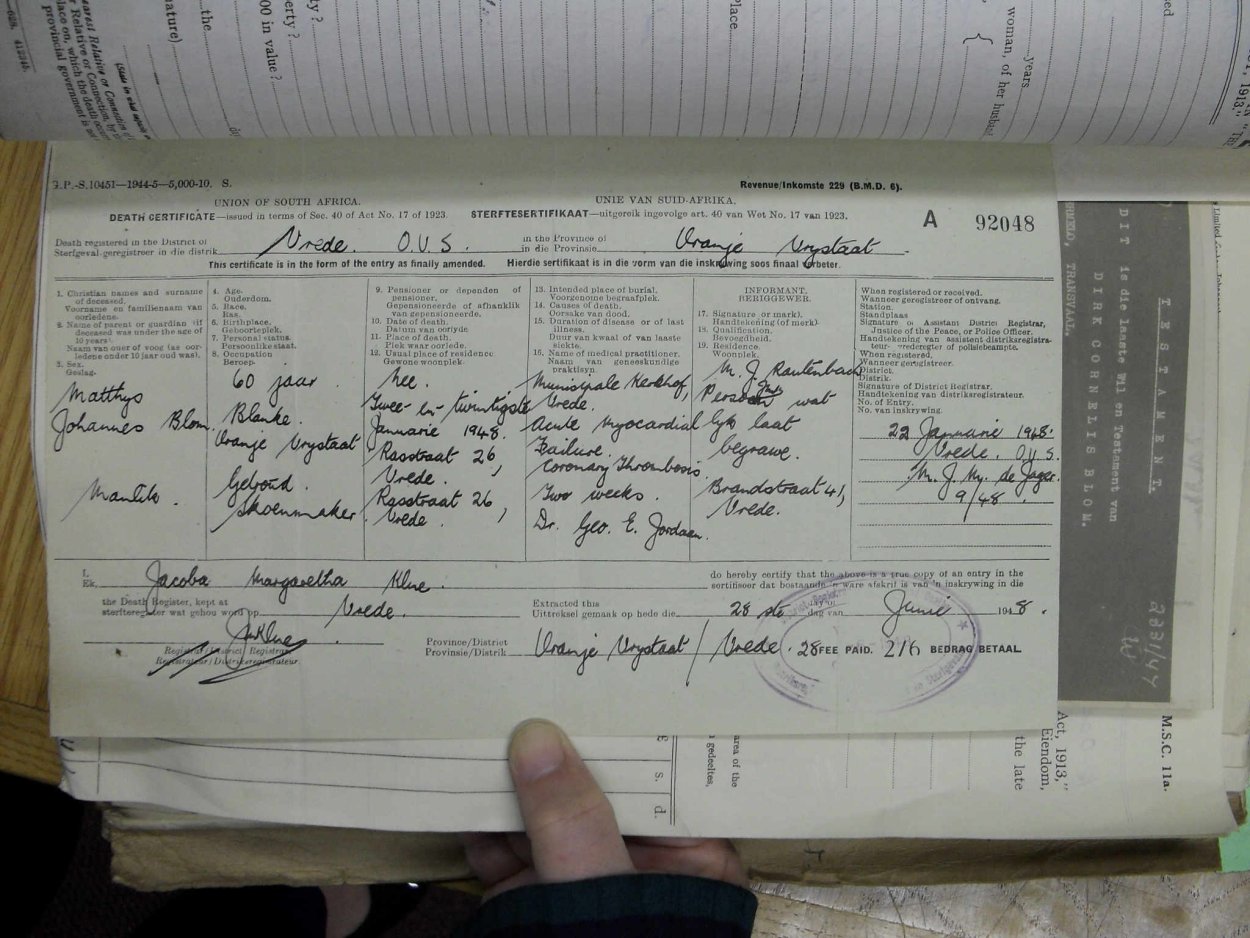 G.P.-S.10451—1944-5—5,000-10. S.
Revenue/Inkomste 229 (B.M.D. 6).
UNION OF SOUTH AFRICA.
UNIE VAN SUID-AFRIKA.
DEATH CERTIFICATE—issued in terms of Sec. 40 of Act No. 17 of 1923.
STERFTESERTIFIKAAT—uitgereik ingevolge art. 40 van Wet No. 17 van 1923.
A 92048
Death registered in the District of
Sterfgeval geregistreer in die distrik
Vrede. O.V.S.
in the Province of
in die Provinsie
Oranje Vrystaat
This certificate is in the form of the entry as finally amended.
Hierdie sertifikaat is in die vorm van die inskrywing soos finaal verbeter.
1. Christian names and surname
of deceased.
Voorname en familienaam van
oorledene.
2. Name of parent or guardian (if
deceased was under the age of
10 years).
Naam van ouer of voog (as oor-
ledene onder 10 jaar oud was).
3. Sex.
Geslag.
Matthys
Johannes Blom.
Manlik.
4. Age.
Ouderdom.
5. Race.
Ras.
6. Birthplace.
Geboorteplek.
7. Personal status.
Persoonlike staat.
8. Occupation
Beroep.
60 jaar.
Blanke.
Oranje Vrystaat
Getroud.
Skoenmaker
9. Pensioner or dependent of
pensioner.
Gepensioneerde of afhanklik
van gepensioneerde.
10. Date of death.
Datum van oorlyde
11. Place of death.
Plek waar oorlede.
12. Usual place of residence
Gewone woonplek.
Nee.
Twee-en-twintigste
Januarie 1948.
Rasstraat 26,
Vrede.
Rasstraat 26,
Vrede.
13. Intended place of burial.
Voorgenome begraafplek.
14. Causes of death.
Oorsake van dood.
15. Duration of disease or of last
illness.
Duur van kwaal of van laaste
siekte.
16. Name of medical practitioner.
Naam van geneeskundige
praktisyn.
Munisipale Kerkhof,
Vrede.
Acute Myocardial
Failure.
Coronary Thrombosis.
Two weeks.
Dr. Geo. E. Jordaan.
INFORMANT.
BERIGGEWER.
17. Signature (or mark).
Handtekening (of merk).
18. Qualification.
Bevoegdheid.
19. Residence.
Woonplek.
M. J. Rautenbach
Persoon wat
lyk laat
begrawe.
Brandstraat 41,
Vrede.
When registered or received.
Wanneer geregistreer of ontvang.
Station.
Standplaas
Signature of Assistant District Registrar,
Justice of the Peace, or Police Officer.
Handtekening van assistent distriksregistra-
teur- vrederegter of polisiebeampte.
When registered,
Wanneer geregistreer.
District.
Distrik.
Signature of District Registrar.
Handtekening van distriksregistrateur.
No. of Entry.
No. van inskrywing.
22 Januarie 1948.
Vrede. O.V.S.
de Jager.
9/48
I,
Ek,
Jacoba Margaretha Klue
do hereby certify that the above is a true copy of an entry in the
sertifiseer dat bostaande 'n ware afskrif is van 'n inskrywing in die
the Death Register, kept at
sterfteregister wat gehou word op
Vrede.
Extracted this
Uittreksel gemaak op hede die
28 ste
day of
dag van
Junie
1948.
JMKlue
Registrar/District Registrar.
Registrateur/Distriksregistrateur
Province/District
Provinsie/Distrik
Oranje Vrystaat / Vrede.
FEE PAID. 2/6 BEDRAG BETAAL.
TESTAMENT.
DIT is die laaste Wil en Testament van
DIRK CORNELIS BLOM.
TRANSVAAL.
M.S.C. 11a.
Act, 1913,"
Eiendom,
the late
area of the
gedeeltes,
s. d.
woman, of her husband
years
Place
000 in value?
the